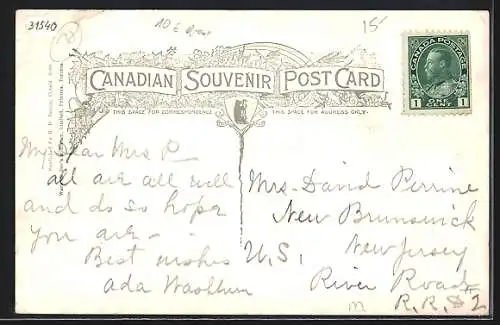 31540
10 £
15-
CANADIAN SOUVENIR POST CARD
THIS SPACE FOR CORRESPONDENCE
THIS SPACE FOR ADDRESS ONLY.
CANADA POSTAGE
1 ONE CENT 1
My Dear Mrs P
all are all well
and do so hope
you are -
Best wishes
Ada Washburn
Mrs. David Perrine
New Brunswick
U.S. New Jersey
River Road
R.R. # 2
m